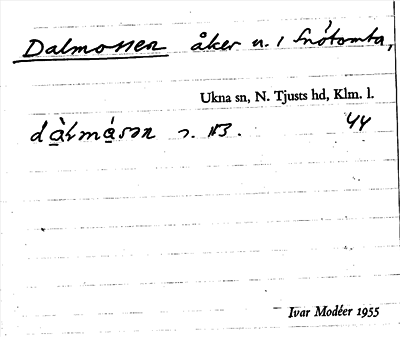 Dalmossen åker n. i Snötomta,
Ukna sn, N. Tjusts hd, Klm. l.
dàlmåsən s. 113. 44
Ivar Modéer 1955